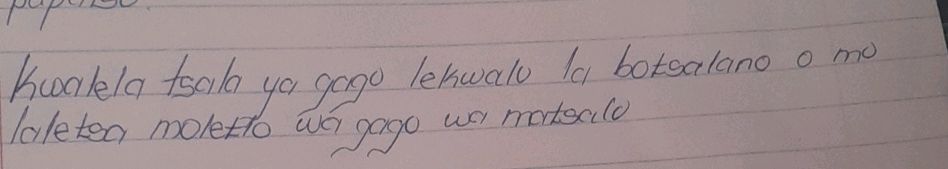 Kwalela tsala ya gago lekwalo la botsalano o mo
laletsa moletlo wa gago wa matsalo